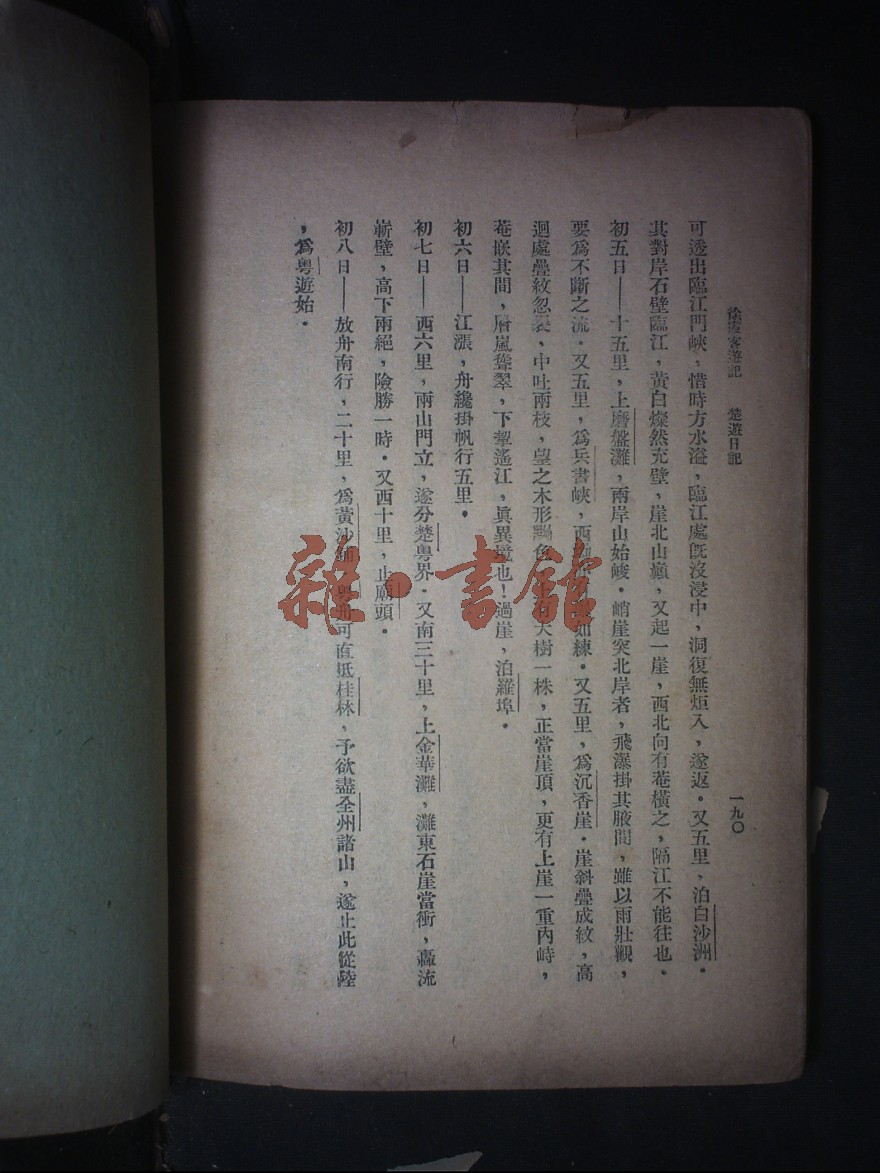 徐霞客遊記　楚遊日記
一九〇
可透出臨江門峽，惜時方水溢，臨江處旣沒浸中，洞復無炬入，遂返．又五里，泊白沙洲．
其對岸石壁臨江，黃白燦然充壁，崖北山巔，又起一崖，西北向有菴橫之，隔江不能往也．
初五日——十五里，上磨盤灘，兩岸山始峻．峭崖突北岸者，飛瀑掛其腋間，雖以雨壯觀，
要爲不斷之流．又五里，爲兵書峽，西如練．又五里，爲沉香崖．崖斜疊成紋，高
迴處疊紋忽裂，中吐兩枝，望之木形色大樹一株，正當崖頂，更有上崖一重內峙，
菴嵌其間，層嵐聳翠，下掣遙江，眞異境也！過崖，泊羅埠．
初六日——江漲，舟纔掛帆行五里．
初七日——西六里，兩山門立，遂分楚粵界．又南三十里，上金華灘，灘東石崖當衝，轟流
嶄壁，高下兩絕，險勝一時．又西十里，止廟頭．
初八日——放舟南行，二十里，爲黃沙可直抵桂林，予欲盡全州諸山，遂止此從陸
，爲粵遊始．
雜·書館